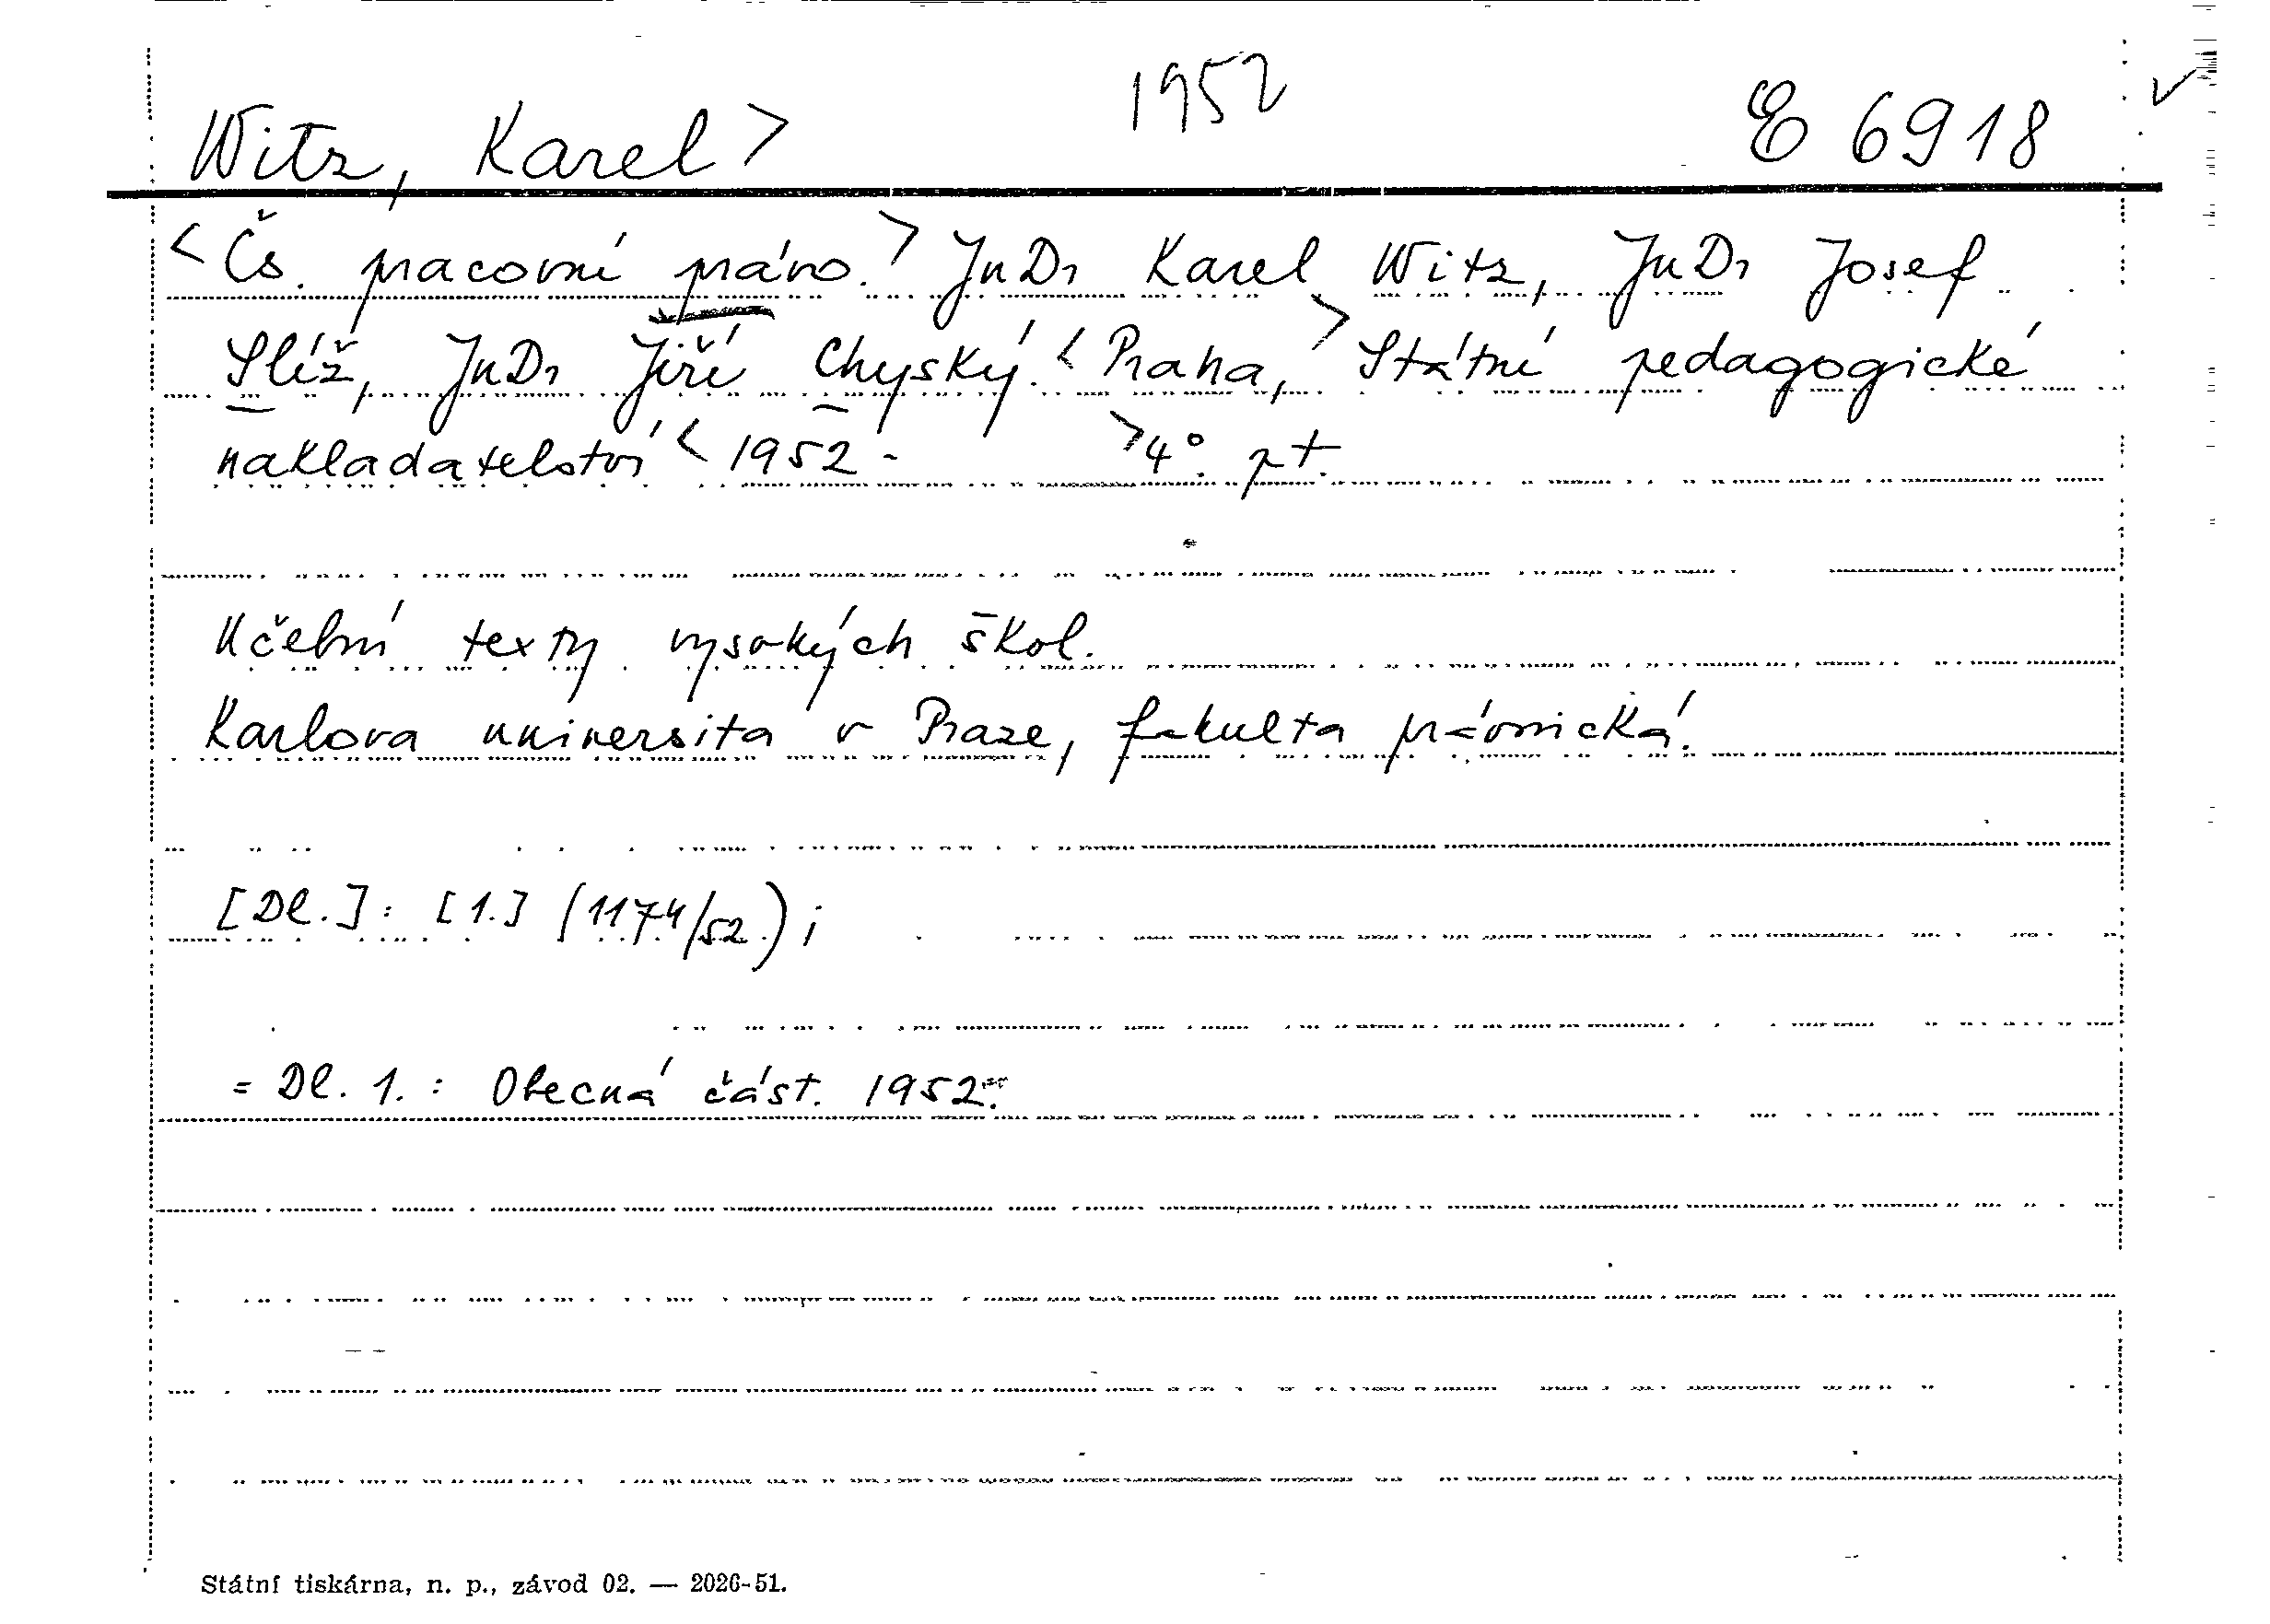 1952
Witz, Karel> E 6918 ✓
<Čs. pracovní právo.> JuDr Karel Witz, JuDr Josef
Slíž, JuDr Jiří Chyský.< Praha,> Státní pedagogické
nakladatelství < 1952 - >4°. pt.
Učební texty vysokých škol.
Karlova universita v Praze, fakulta právnická.
[Dl.]: [1.] (1174/52.) ;
= Dl. 1. : Obecná část. 1952.
Státní tiskárna, n. p., závod 02. — 2026-51.